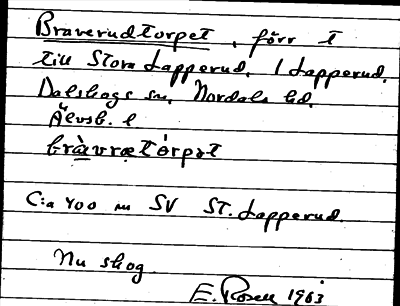 Braverudtorpet, förr t
till Stora Lapperud, 1 Lapperud,
Dalskogs sn, Nordals hd,
Älvsb. l
bràvrætórpət
C:a 400 m SV ST. Lapperud
Nu skog
E. Rosell 1963